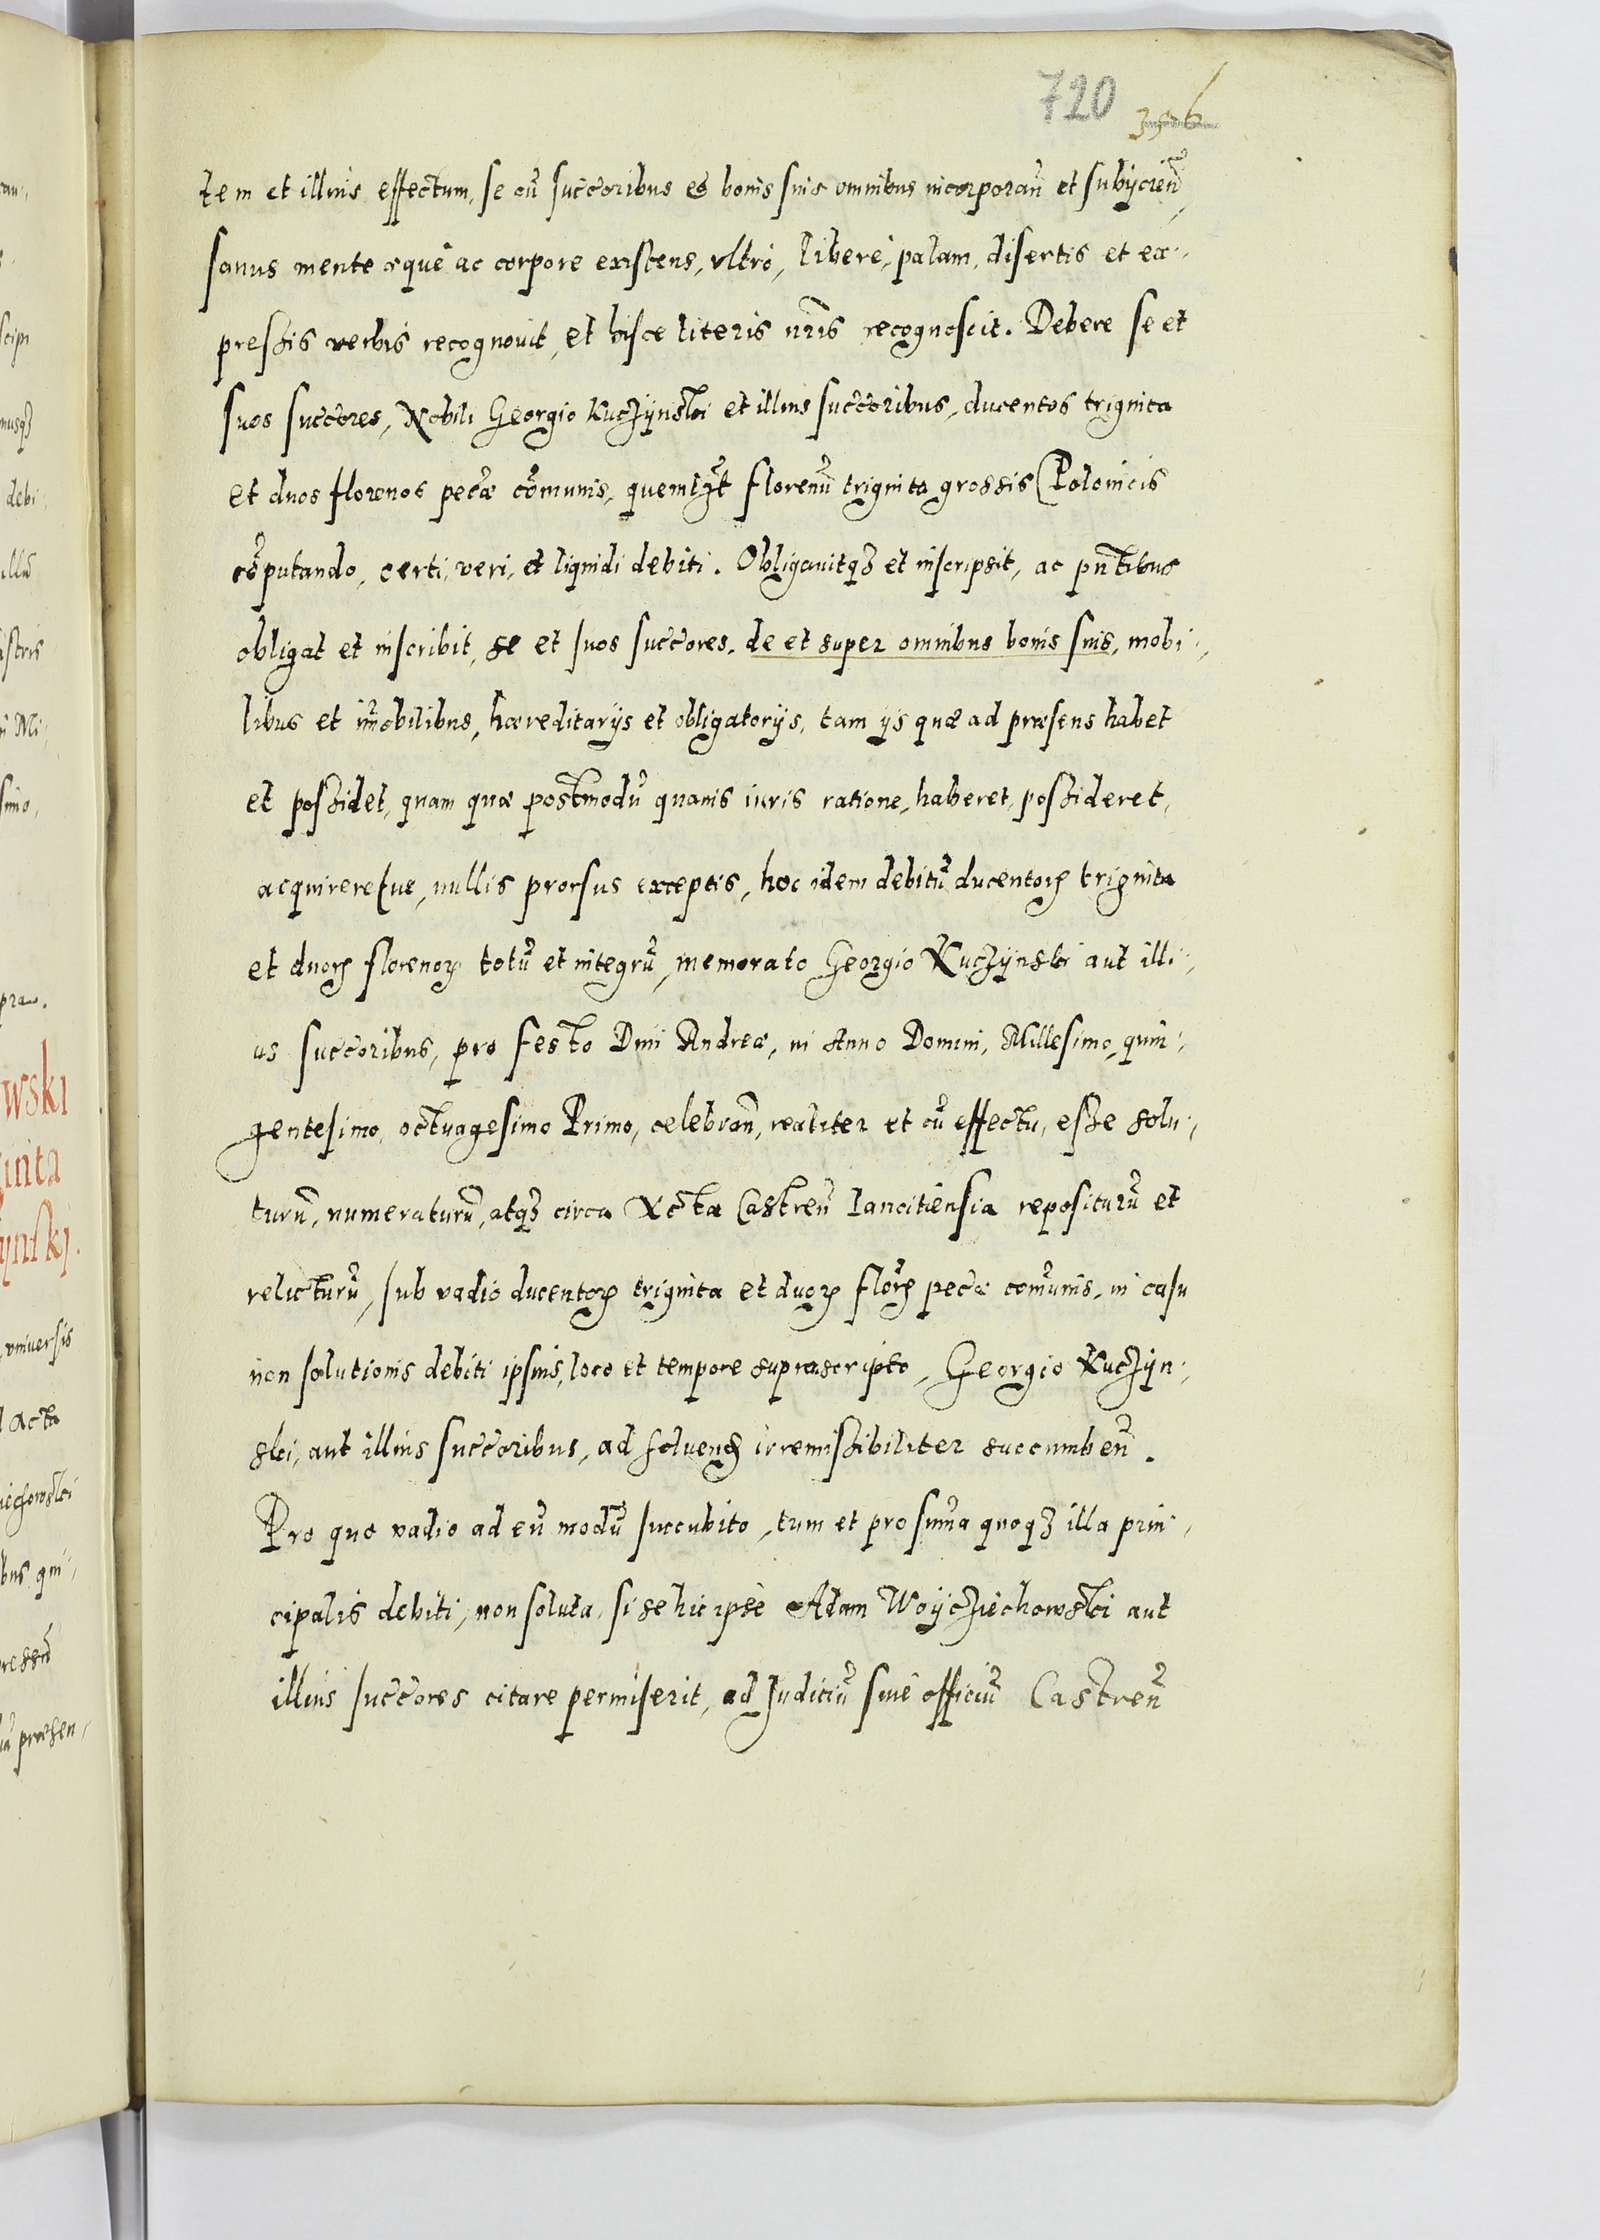 720
tem et illius effectum, se cũ succoribus et bonis suis omnibus incorporan̄ et subijcien̄,
sanus mente æquè ac corpore existens, vltrò, liberè, palam, disertis et ex-
pressis verbis recognouit, et hisce literis nr̄is recognoscit. Debere se et
suos succores, Nobili Georgio Kuczÿnski et illius succoribus, ducentos triginta
et duos florenos pecæ cõmunis, quemlꝫt florenũ triginta grossis Polonicis
cõputando, certi, veri, et liquidi debiti. Obligauitqꝫ et inscripsit, ac pn̄tibus
obligat et inscribit, se et suos succores, de et super omnibus bonis suis, mobi-
libus et im̃obilibus, hæreditarijs et obligatorijs, tam ijs quæ ad præsens habet
et possidet, quam quæ postmodũ quauis iuris ratione, haberet, possideret,
acquireretue, nullis prorsus exceptis, hoc idem debitũ ducentoꝝ triginta
et duoꝝ florenoꝝ totũ et integrũ, memorato Georgio Kuczÿnski aut illi-
us succoribus, pro festo Diui Andreæ, in Anno Domini, Millesimo, quin-
gentesimo, octuagesimo Primo, celebran̄, realiter et cũ effectu, esse solu-
turũ, numeraturũ, atqꝫ circa Acta Castren̄ Lancitiensia repositurũ et
relicturũ, sub vadio ducentoꝝ triginta et duoꝝ floꝝ pecæ com̃unis, in casu
non solutionis debiti ipsius, loco et tempore suprascripto, Georgio Kuczÿn-
ski, aut illius succoribus, ad soluenđ irremissibiliter succumben̄.
Pro quo vadio ad eũ modũ succubito, tum et pro sum̃a quoqꝫ illa prin-
cipalis debiti, non soluta, si se hic ipse Adam Woÿcziechowski aut
illius succores citare permiserit, ad Judiciũ siue officiũ Castren̄